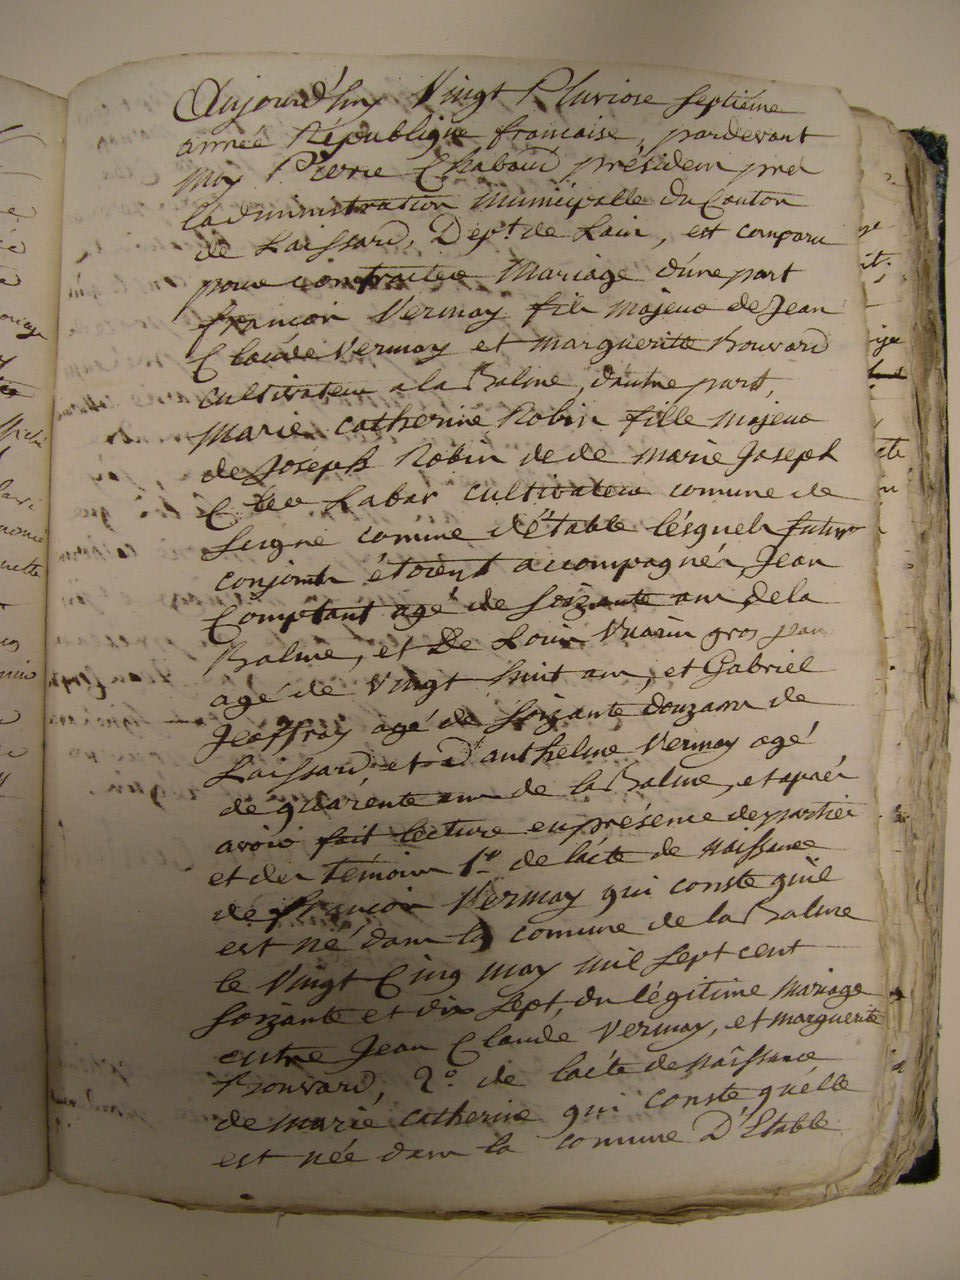 Aujourd'huy Vingt Pluviose septiéme
année République francaise, pardevant
moy Pierre Chabaud présiden pred
Ladministration Municipalle du Canton
de Laissard, Dept de Lain, est comparu
pour contracter Mariage d'une part
françois Vermay fils majeur de Jean
Claude Vermay et margueritte Bouvard
cultivateur a la Balme, dautre part,
marie catherine Robin fille majeur
de Joseph Robin de de marie Joseph
Labar cultivateur comune de
Seigne comune d'étable lésquels futur
conjoints étoient accompagnés, Jean
Comptant agé de soizante ans de la
Balme, et De Louis Vuarin gros jean
agé de Vingt huit ans, et Gabriel
Jeoffray agé de soizante douzans de
Laissard, et D'anthelme Vermay agé
de quarente ans de la Balme, et aprés
avoir fait lecture en présence de parties
et des témoins 1º de lacte de naissance
de françois Vermay qui conste quil
est né dans la comune de la Balme
le Vingt Cinq may mil sept cent
soizante et dix sept, du légitime mariage
entre Jean Claude Vermay, et marguerite
Bouvard, 2º de lacte de naissance
de marie catherine qui conste quelle
est née dans la comune D'Etable